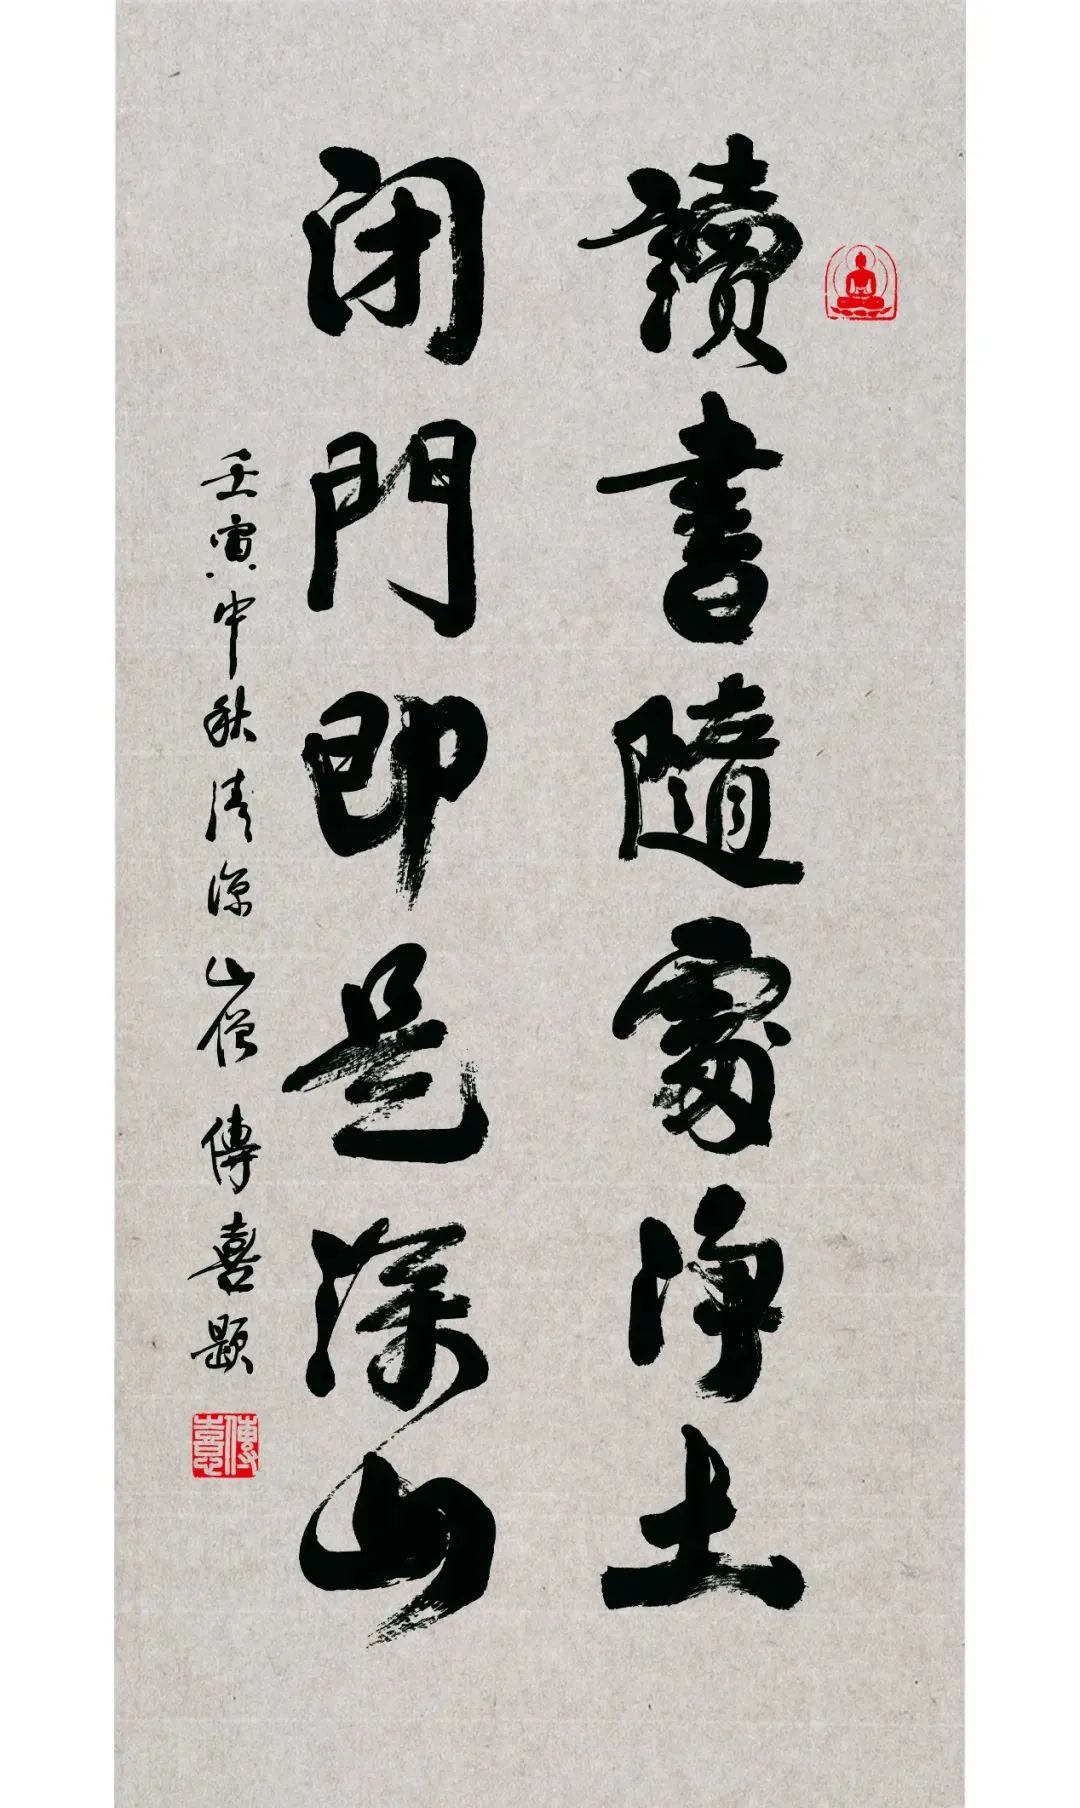 讀書隨處淨土
闭門即是深山
壬寅中秋清源山僧傳喜題
傳喜